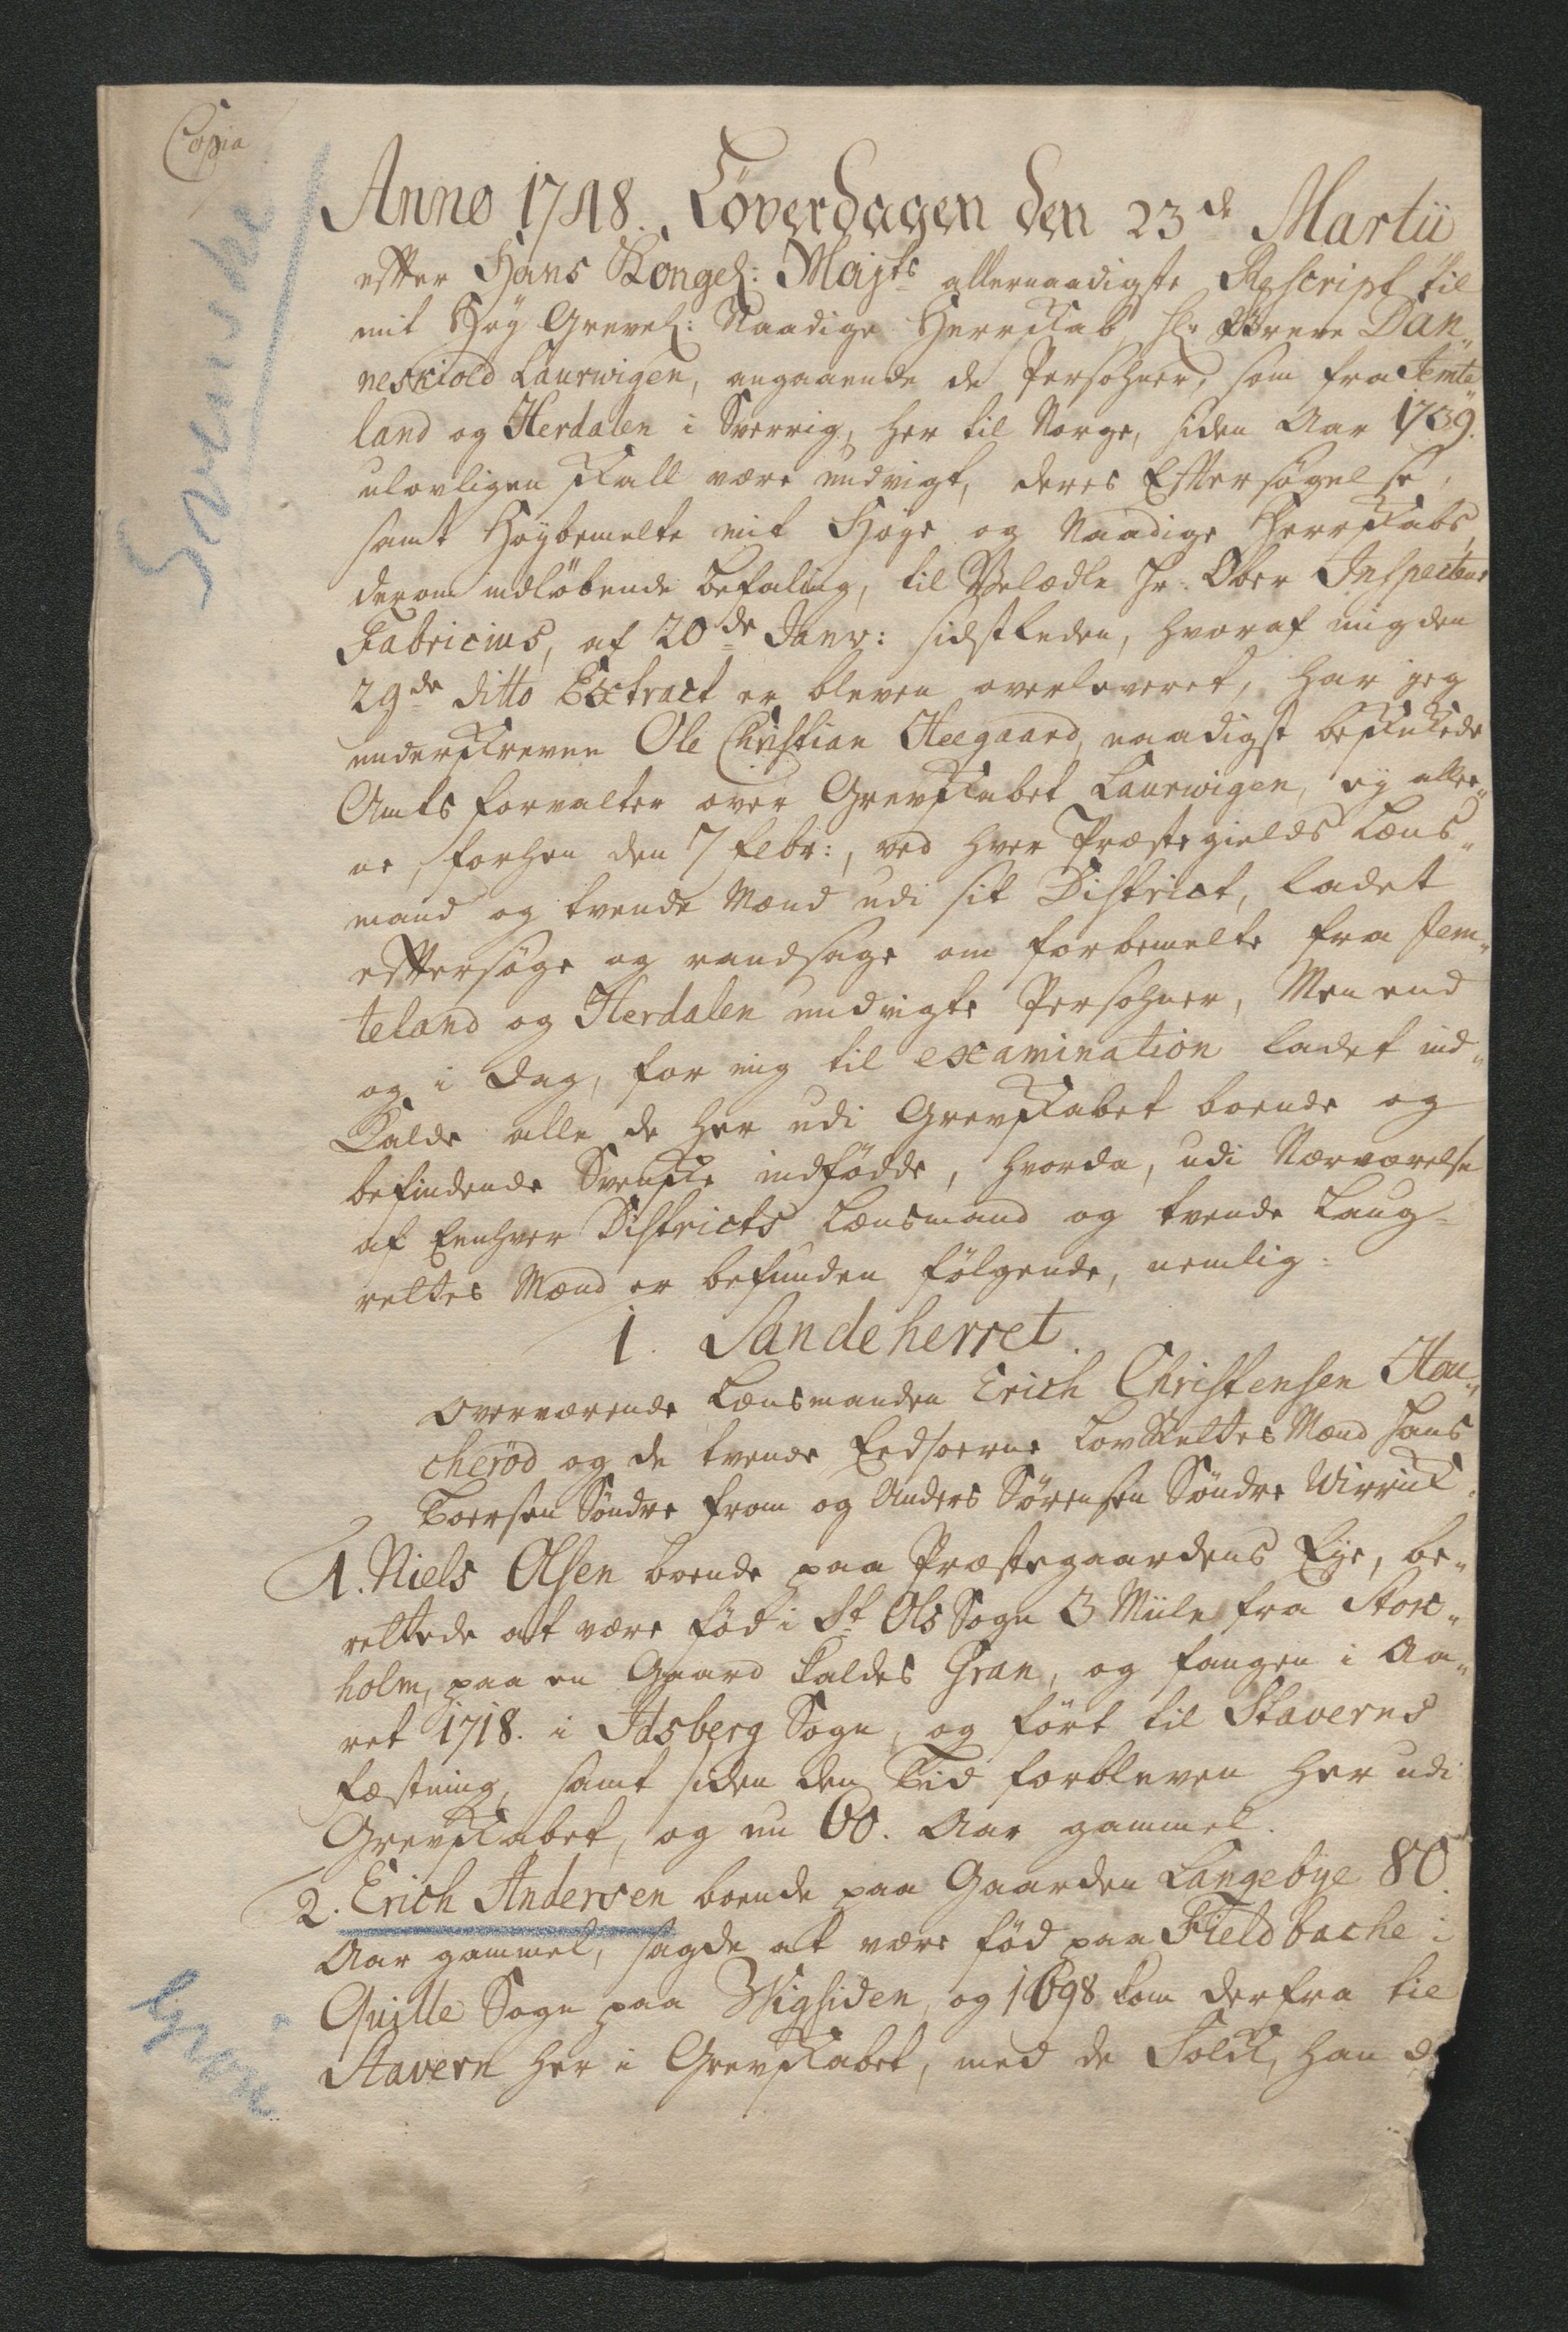 Copia
Svenske
Anno 1748. Löverdagen den 23de Martii
efter Hans Kongel: Majts allernaadigste Rescript til
mit Höy Grevel: Naadige Herskab, Hr: Greve Dan„
neskiold Laurwigen, angaaende de Persohner, som fra Jemte
land og Herdalen i Sverrig, her til Norge, siden Aar 1739.
ulovligen skall være undvigt, deres Eftersögelse,
samt Höybemelte mit Höye og Naadige Herskabs,
derom indlöbende befaling, til Velædle Hr: Ober Inspecteur
Fabricius, af 20de Janv: sidstleden, hvoraf mig den
29de ditto Extract er bleven overleveret, har jeg
underskreven Ole Christian Heegaard, naadigst beskikkede
Amtsforvalter over Grevskabet Laurwigen, ey allee„
ne, forhen den 7 febr:, ved hver Præstegields Læns„
mand og tvende Mænd udi sit District, ladet
eftersöge og randsage om forbemelte fra Jem„
teland og Herdalen undvigte Persohner, Men end
og i Dag, for mig til examination ladet ind„
kalde alle de her udi Grevskabet boende og
befindende Svenske indfödde, hvorda, udi Nærværelse
af Eenhver Districts Lænsmand og tvende Laug„
rettes Mænd er befunden fölgende, nemlig:
1. Sandeherret.
Overværende Lænsmanden Erich Christensen Hau„
cheröd og de tvende Eedsorne LovRettes Mænd Hans
Toersen Söndre from og Anders Sörensen Söndre Wirrik.
1. Niels Olsen boende paa Præstegaardens Eye, be„
rettede at være fød i St Ols Sogn 3 Miile fra Stox„
holm, paa en Gaard kaldes Gran, og fangen i Aa„
ret 1718. i Idsberg Sogn, og fört til Staverns
fæstning, samt siden den Tid forbleven her udi
Grevskabet, og nu 60. Aar gammel.
2. Erich Andersen boende paa Gaarden Langebÿe 80.
Aar gammel, sagde at være fød paa Fieldbache i
Quille Sogn paa Wigsiden, og 1698 kom derfra til
Stavern her i Grevskabet, med de Folk, han d